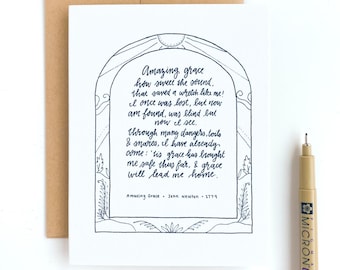 Amazing grace
how sweet the sound,
that saved a wretch like me!
I once was lost, but now
am found, was blind but
now I see.
through many dangers, toils
& snares, I have already
come: 'tis grace has brought
me safe thus far, & grace
will lead me home.
Amazing Grace • John Newton • 1779
MICRON